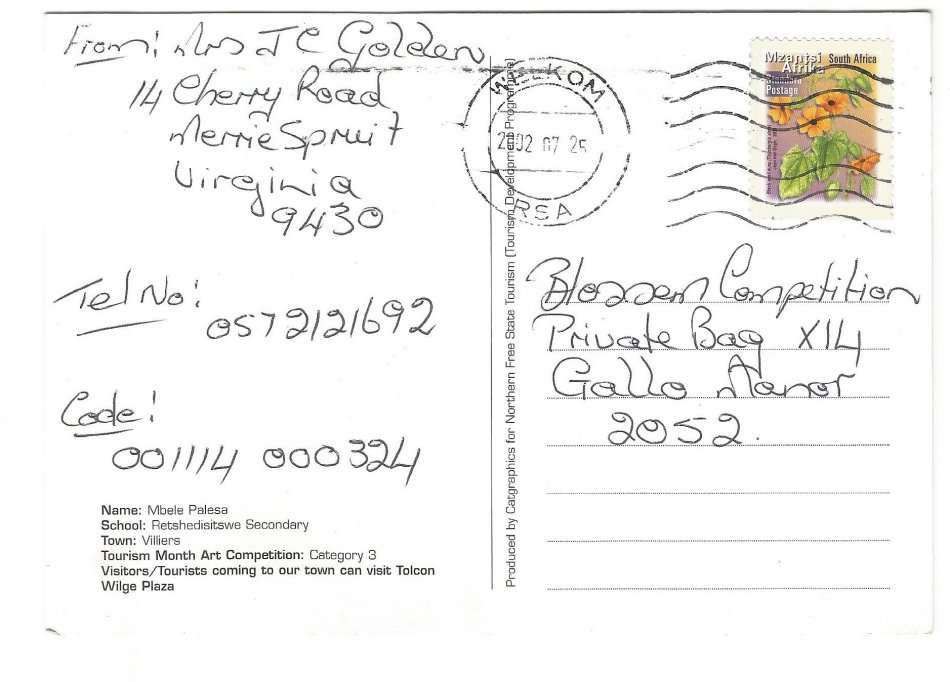 From: Mrs J C Golden
14 Cherry Road
Merriespruit
Virginia
9430
Tel No:
0572121692
Code:
001114 000324
Name: Mbele Palesa
School: Retshedisitswe Secondary
Town: Villiers
Tourism Month Art Competition: Category 3
Visitors/Tourists coming to our town can visit Tolcon
Wilge Plaza
Produced by Catgraphics for Northern Free State Tourism (Tourism Development Programme)
WELKOM
2002 07 25
RSA
Mzantsi
Afrika
South Africa
Postage
Blossem Competition
Private Bag X14
Gallo Manor
2052.